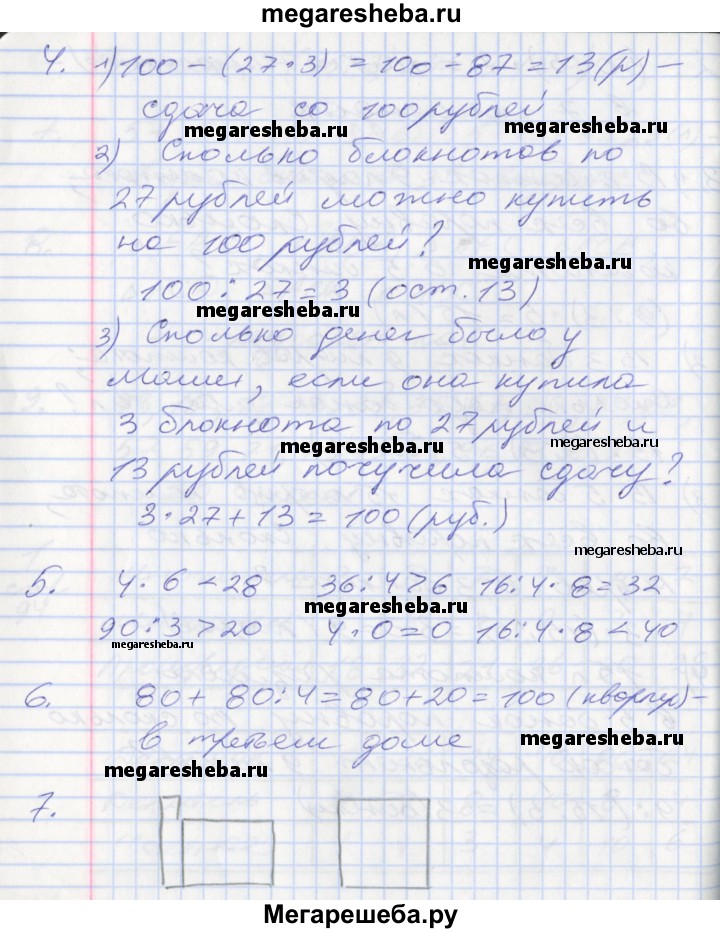 megaresheba.ru
4. 1) 100 - (27 · 3) = 100 - 87 = 13 (р) -
сдача со 100 рублей
megaresheba.ru megaresheba.ru
2) Сколько блокнотов по
27 рублей можно купить
на 100 рублей?
megaresheba.ru
100 : 27 = 3 (ост. 13)
megaresheba.ru
3) Сколько денег было у
megaresheba.ru
Маши, если она купила
3 блокнота по 27 рублей и
megaresheba.ru megaresheba.ru
13 рублей получила сдачу?
3 · 27 + 13 = 100 (руб.)
megaresheba.ru
5. 4 · 6 < 28 36 : 4 > 6 16 : 4 · 8 = 32
megaresheba.ru
90 : 3 > 20 4 · 0 = 0 16 : 4 · 8 < 40
megaresheba.ru
6. 80 + 80 : 4 = 80 + 20 = 100 (квартир) -
в третьем доме
megaresheba.ru
megaresheba.ru
7.
Мегарешеба.ру